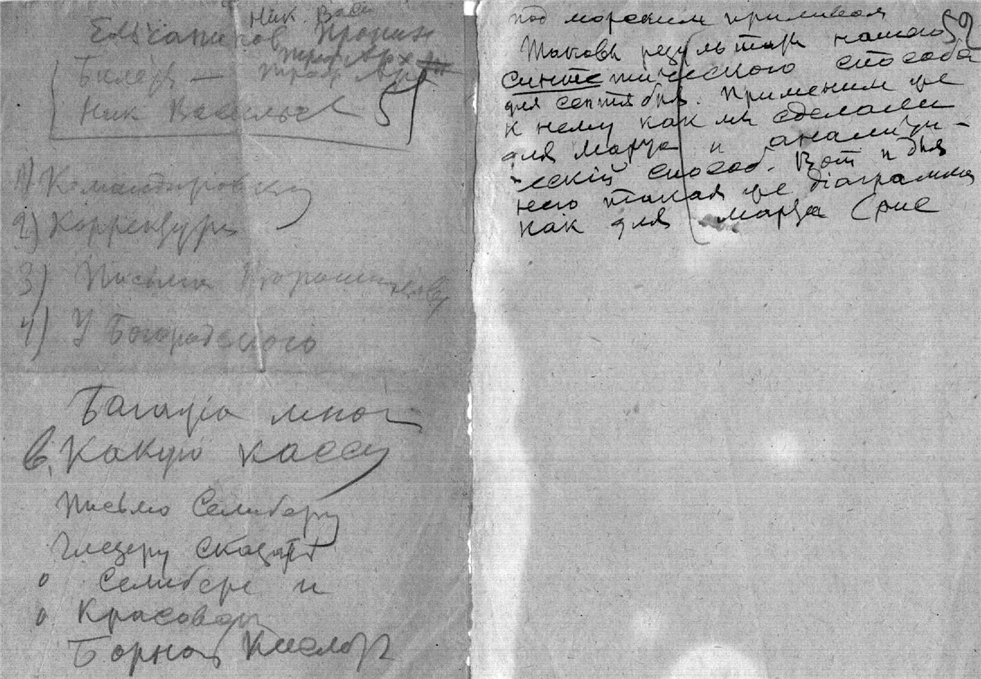 Ник. Вас
Билеры —
Ник Васильев 5
1) Командировку
2) Корректура
3) Письма
4) У Богородского
Багажа много
в. Какую кассу
Письмо Селиберу
Глезеру сказать
о Селибере и
о Красов
Борной Кислоты
59
под морским приливом
Таковы результаты нашего
синтетического способа
для сентября. Применим же
к нему как мы сделали
для марта и аналити-
ческий способ. Вот и для
него такая же діаграмма
как для марта